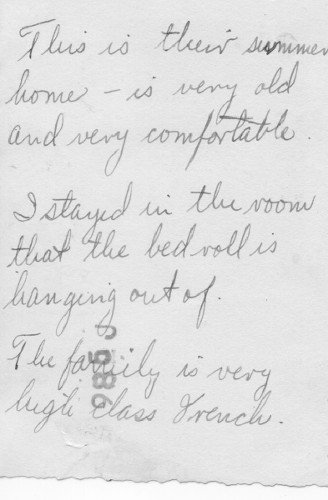 This is their summer
home – is very old
and very comfortable.
I stayed in the room
that the bed roll is
hanging out of.
The family is very
high class French.